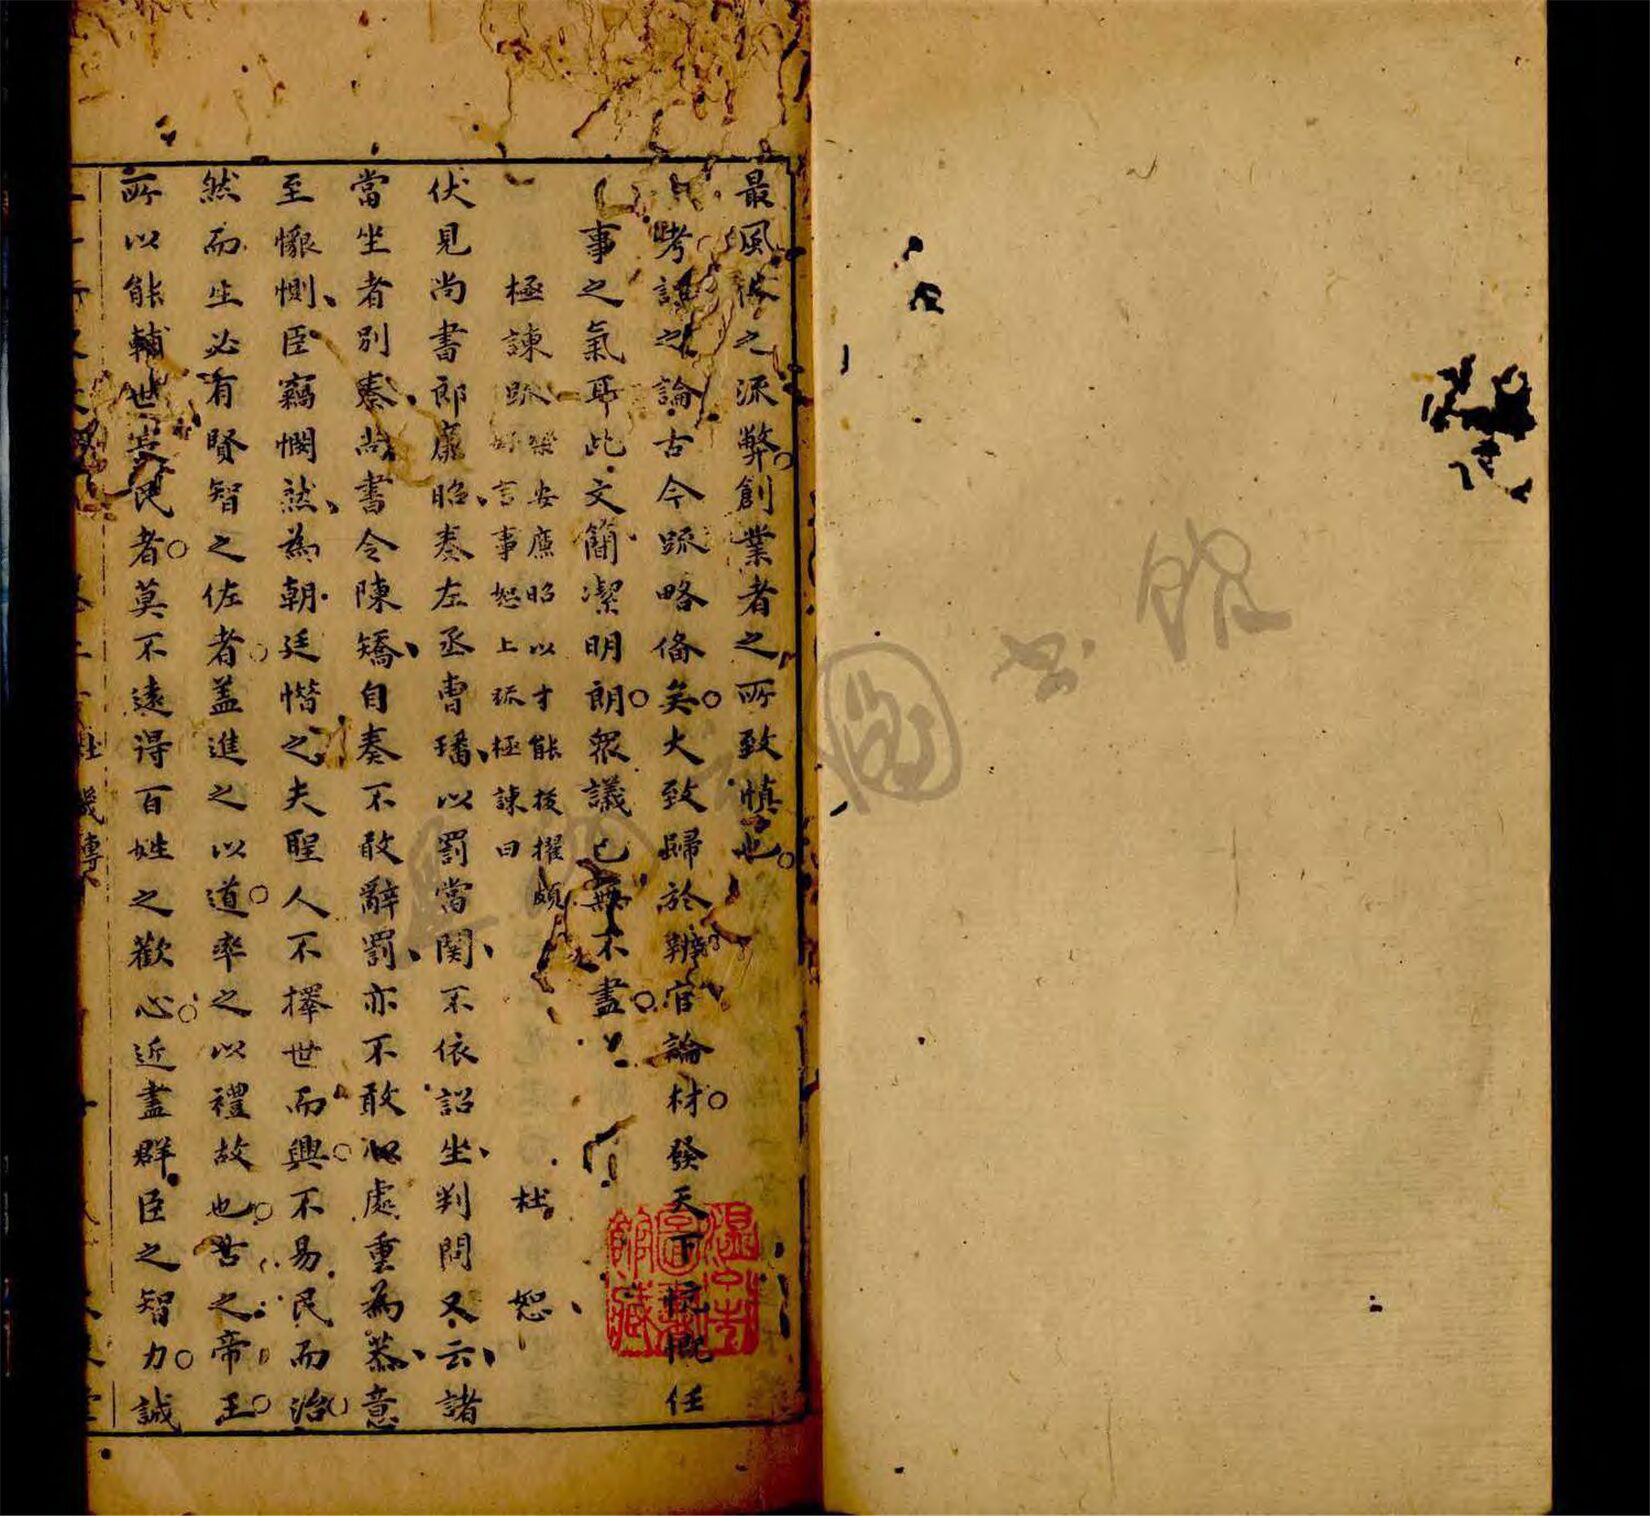 最風俗之流弊創業者之所致慎也
考課之論古今疏略俻矣大致歸於辨官論材發天下忼慨任
事之氣耳此文簡潔明朗眾議已無不盡
極諫疏 樂安廉昭以才能拔擢頗
好言事恕上疏極諫曰 杜恕
伏見尚書郎廉昭奏左丞曹璠以罰當関不依詔坐判問又云諸
當坐者別奏尚書令陳矯自奏不敢辭罰亦不敢以處重為恭意
至懇惻臣竊憫然為朝廷惜之夫聖人不擇世而興不易民而治
然而生必有賢智之佐者盖進之以道率之以禮故也昔之帝王
所以能輔世長民者莫不遠得百姓之歡心近盡群臣之智力誠
溫州市圖書館藏